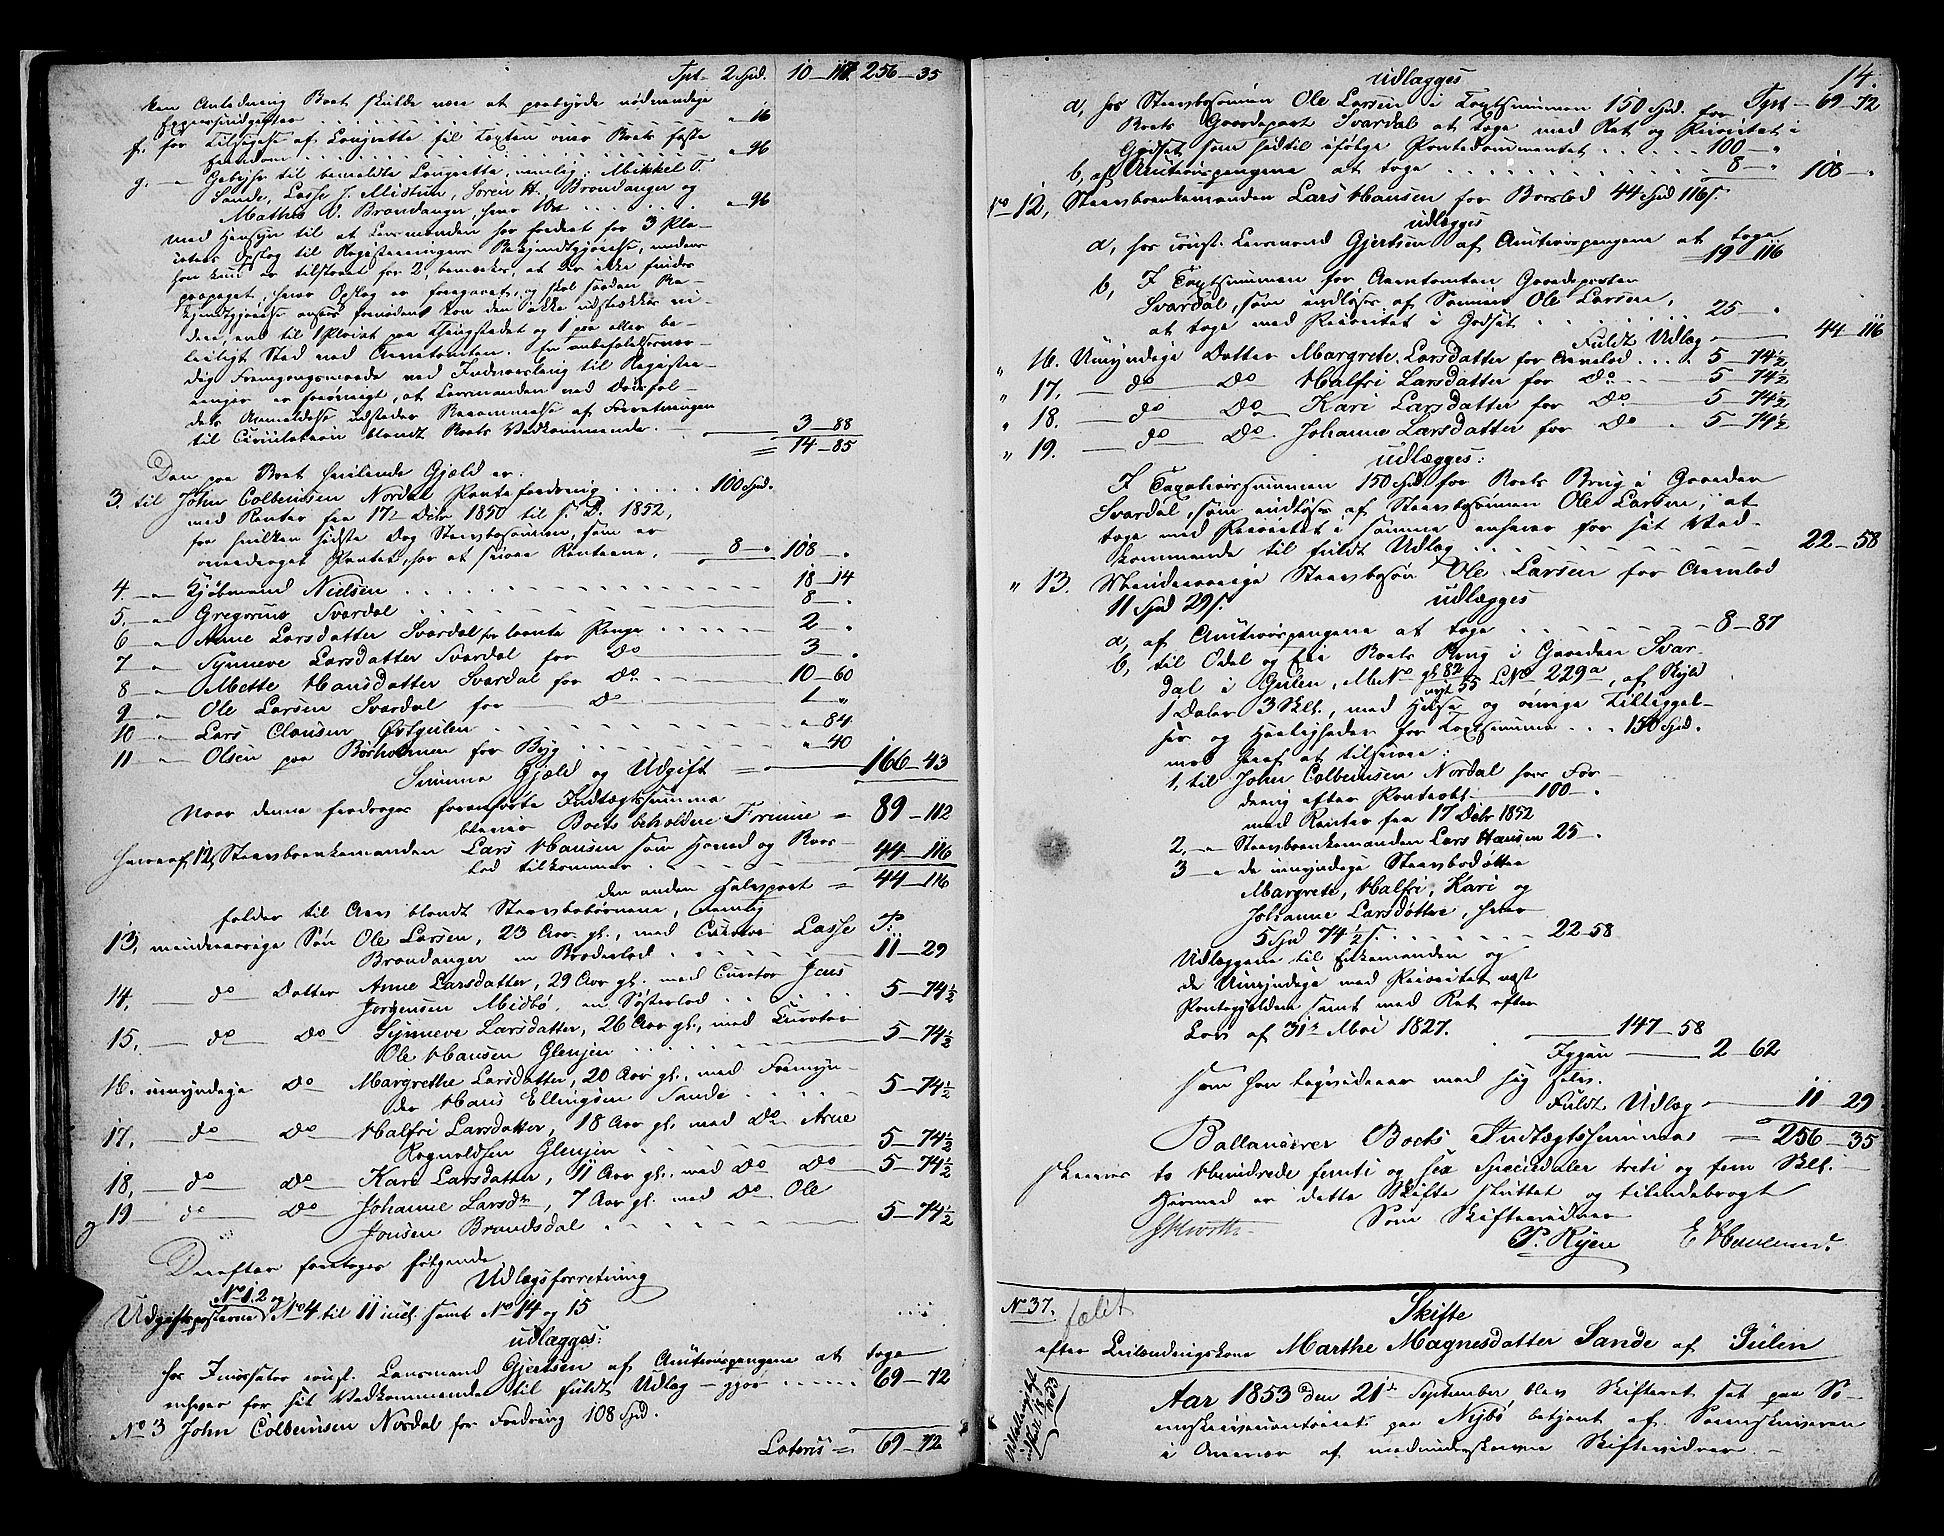 Tpt. 2 Spd. 10 - 117 256 - 35
ken Anledning Boet skulde være at paabyrde nødvendige
Expensudgifter " 16
f, for Tilsigelse af Laugrette til Taxten over Boets faste
Eiendom " 96
g. — Gebyhr til bemeldte Laugrette, nemlig: Mikkel T.
Sande, Lasse J. Mistun, Søren H. Brandanger og
Mathis O. Brandanger, hver 10 " 96
med Hensyn til at Lensmanden har fordret for 3 Pla-
caters Opslag til Registreringens Bekjendtgjørelse, medens
han kun er tilstaaet for 2, bemærkes, at der ikke findes
paategnet, hvor Opslag er foregaaet, og skal saadan Be-
kjendtgjørelse ansees fornøden kan den ikke udstrækkes vi-
dere, end til 1 Placat paa Thingstedet og 1 paa eller be-
leiligt Sted ved Arnetomten. En anbefalelsesvær-
dig Fremgangsmaade ved Indvarsling til Registre-
ringer er forøvrigt, at Lensmanden ved Dødsfal-
dets Anmeldelse udsteder Berammelse af Forretningen
til Circulation blandt Boets Vedkommende. 3 - 88
14 - 85
Den paa Boet hvilende Gjæld er:
3. til John Colbeinsen Nordal Pantefordring 100 Spd.
med Renter fra 17de Decbr 1850 til s. D. 1852,
fra hvilken sidste Dag Stervbosønnen, som er
overdraget Pantet, har at svare Renterne, 8 - " 108 - "
4. — " Kjøbmand Nielsen 18 - 14
5. — " Gregorius Svardal 8 - "
6 — " Anne Larsdatter Svardal for laante Penge 2 - "
7 — " Synneve Larsdatter Svardal for Do 3 - "
8 — " Mette Hansdatter Svardal for Do. 10 - 60
9 — " Ole Larsen Svardal for Do 1 - "
10 — " Lars Clausen Østgulen " - 84
11 — " Olsen paa Børholmen for Byg " - 40
Summa Gjæld og Udgift = 166 - 43
Naar denne fradrages foranførte Indtægtssumma
bliver Boets beholdne Formue = 89 - 112
hvoraf 12, Stervboenkemanden Lars Hansen som Hoved og Boes-
lod tilkommer 44 - 116
den anden Halvpart = 44 - 116
falder til Arv blandt Stervbobørnene, nemlig
13, mindreaarige Søn Ole Larsen, 23 Aar gl., med Curator Lasse P.
Brandanger en Broderlod 11 - 29
14, — do Datter Anne Larsdatter, 29 Aar gl., med Curator Jens
Jørgensen Midbø, en Søsterlod 5 - 74½
15, — do Do Synneve Larsdatter, 26 Aar gl., med Curator
Ole Hansen Glenjen 5 - 74½
16. umyndige Do Margrethe Larsdatter, 20 Aar gl., med Formyn-
der Hans Ellingsen Sande 5 - 74½
17, — do Do Halfri Larsdatter, 18 Aar gl. med Do Arne
Rognaldsen Glenjen 5 - 74½
18, — do Do Kari Larsdatter, 11 Aar gl., med Do Do 5 - 74½
og 19 — do Do Johanne Larsdr, 7 Aar gl. med Do Ole
Jonsen Brandsdal 5 - 74½
Derefter foretages følgende
Udlægsforretning
No 1, 2 og
Udgiftsposterne No 4 til 11 incl. samt No 14 og 15
udlægges:
hos Incassator const. Lensmand Gjertsen af Auctionspengene at tage
enhver for sit Vedkommende til fuldt Udlæg — gjør 69 - 72
No 3 John Colbeinsen Nordal for Fordring 108 Spd.
Lateris = 69 - 72
14.
udlægges Tpt - 69 - 72
a, hos Stervbosønnen Ole Larsen i Taxtsummen 150 Spd. for
Boets Gaardepart Svardal at tage med Ret og Prioritet i
Godset som hidtil ifølge Pantedocumentet 100 - "
b, af Auctionspengene at tage 8 - " 108 - "
No 12, Stervboenkemanden Lars Hansen for Boeslod 44 Spd 116 s.
udlægges
a, hos const. Lensmand Gjertsen af Auctionspengene at tage
19 - 116
b, I Taxtsummen for Arnetomten Gaardeparten
Svardal, som indløses af Sønnen Ole Larsen,
at tage med Prioritet i Godset 25 - "
Fuldt Udlæg 44 - 116
" 16. Umyndige Datter Margrete Larsdatter for Arvelod 5 - 74½
" 17, — do Do Halfri Larsdatter for Do 5 - 74½
" 18. — do Do Kari Larsdatter for Do 5 - 74½
" 19. — do Do Johanne Larsdatter for Do 5 - 74½
udlægges:
I Taxationssummen 150 Spd for Boets Brug i Gaarden
Svardal, som indløses af Stervbosønnen Ole Larsen, at
tage med Prioritet i samme enhver for sit Ved-
kommende til fuldt Udlæg 22 - 58
" 13. Mindreaarige Stervbosøn Ole Larsen for Arvelod
11 Spd 29 s. udlægges
a, af Auctionspengene at tage 8 - 87
b, til Odel og Eie Boets Brug i Gaarden Svar-
dal i Gulen, MNo gl. 82 nyt 55 LNo 229a, af Skyld
1 Daler 3 Skl., med Huse og øvrige Tilliggel-
ser og Herligheder for Taxtsumma 150 Spd.
mod heraf at tilsvare:
1, til John Colbeinsen Nordal hans For-
dring efter Panteobl. 100 - "
med Renter fra 17 Decbr 1852
2, — " Stervboenkemanden Lars Hansen 25 - "
3 — " de umyndige Stervbodøttre
Margrete, Halfri, Kari og
Johanne Larsdøttre, hver
5 Spd 74½ s. 22 - 58
Udlæggene til Enkemanden og
de Umyndige med Prioritet næst
Pantegjælden samt med Ret efter
Lov af 31te Mai 1827.
147 - 58
Igjen 2 - 62
som han liqviderer med sig selv.
Fuldt Udlæg 11 - 29
Ballancerer Boets Indtægtssumma = 256 - 35
skriver to Hundrede femti og sex Speciedaler treti og fem Skl.
Hermed er dette Skifte sluttet og tilendebragt
Som Skiftevidner
P. Ryen
No 37. fælit
Skifte
efter Leilændingskone Marthe Magnesdatter Sande af Gulen
Aar 1853 den 21de September blev Skifteret sat paa So-
renskrivercontoiret paa Nybø betjent af Sorenskriveren
i Overvær af medunderskrevne Skiftevidner. —